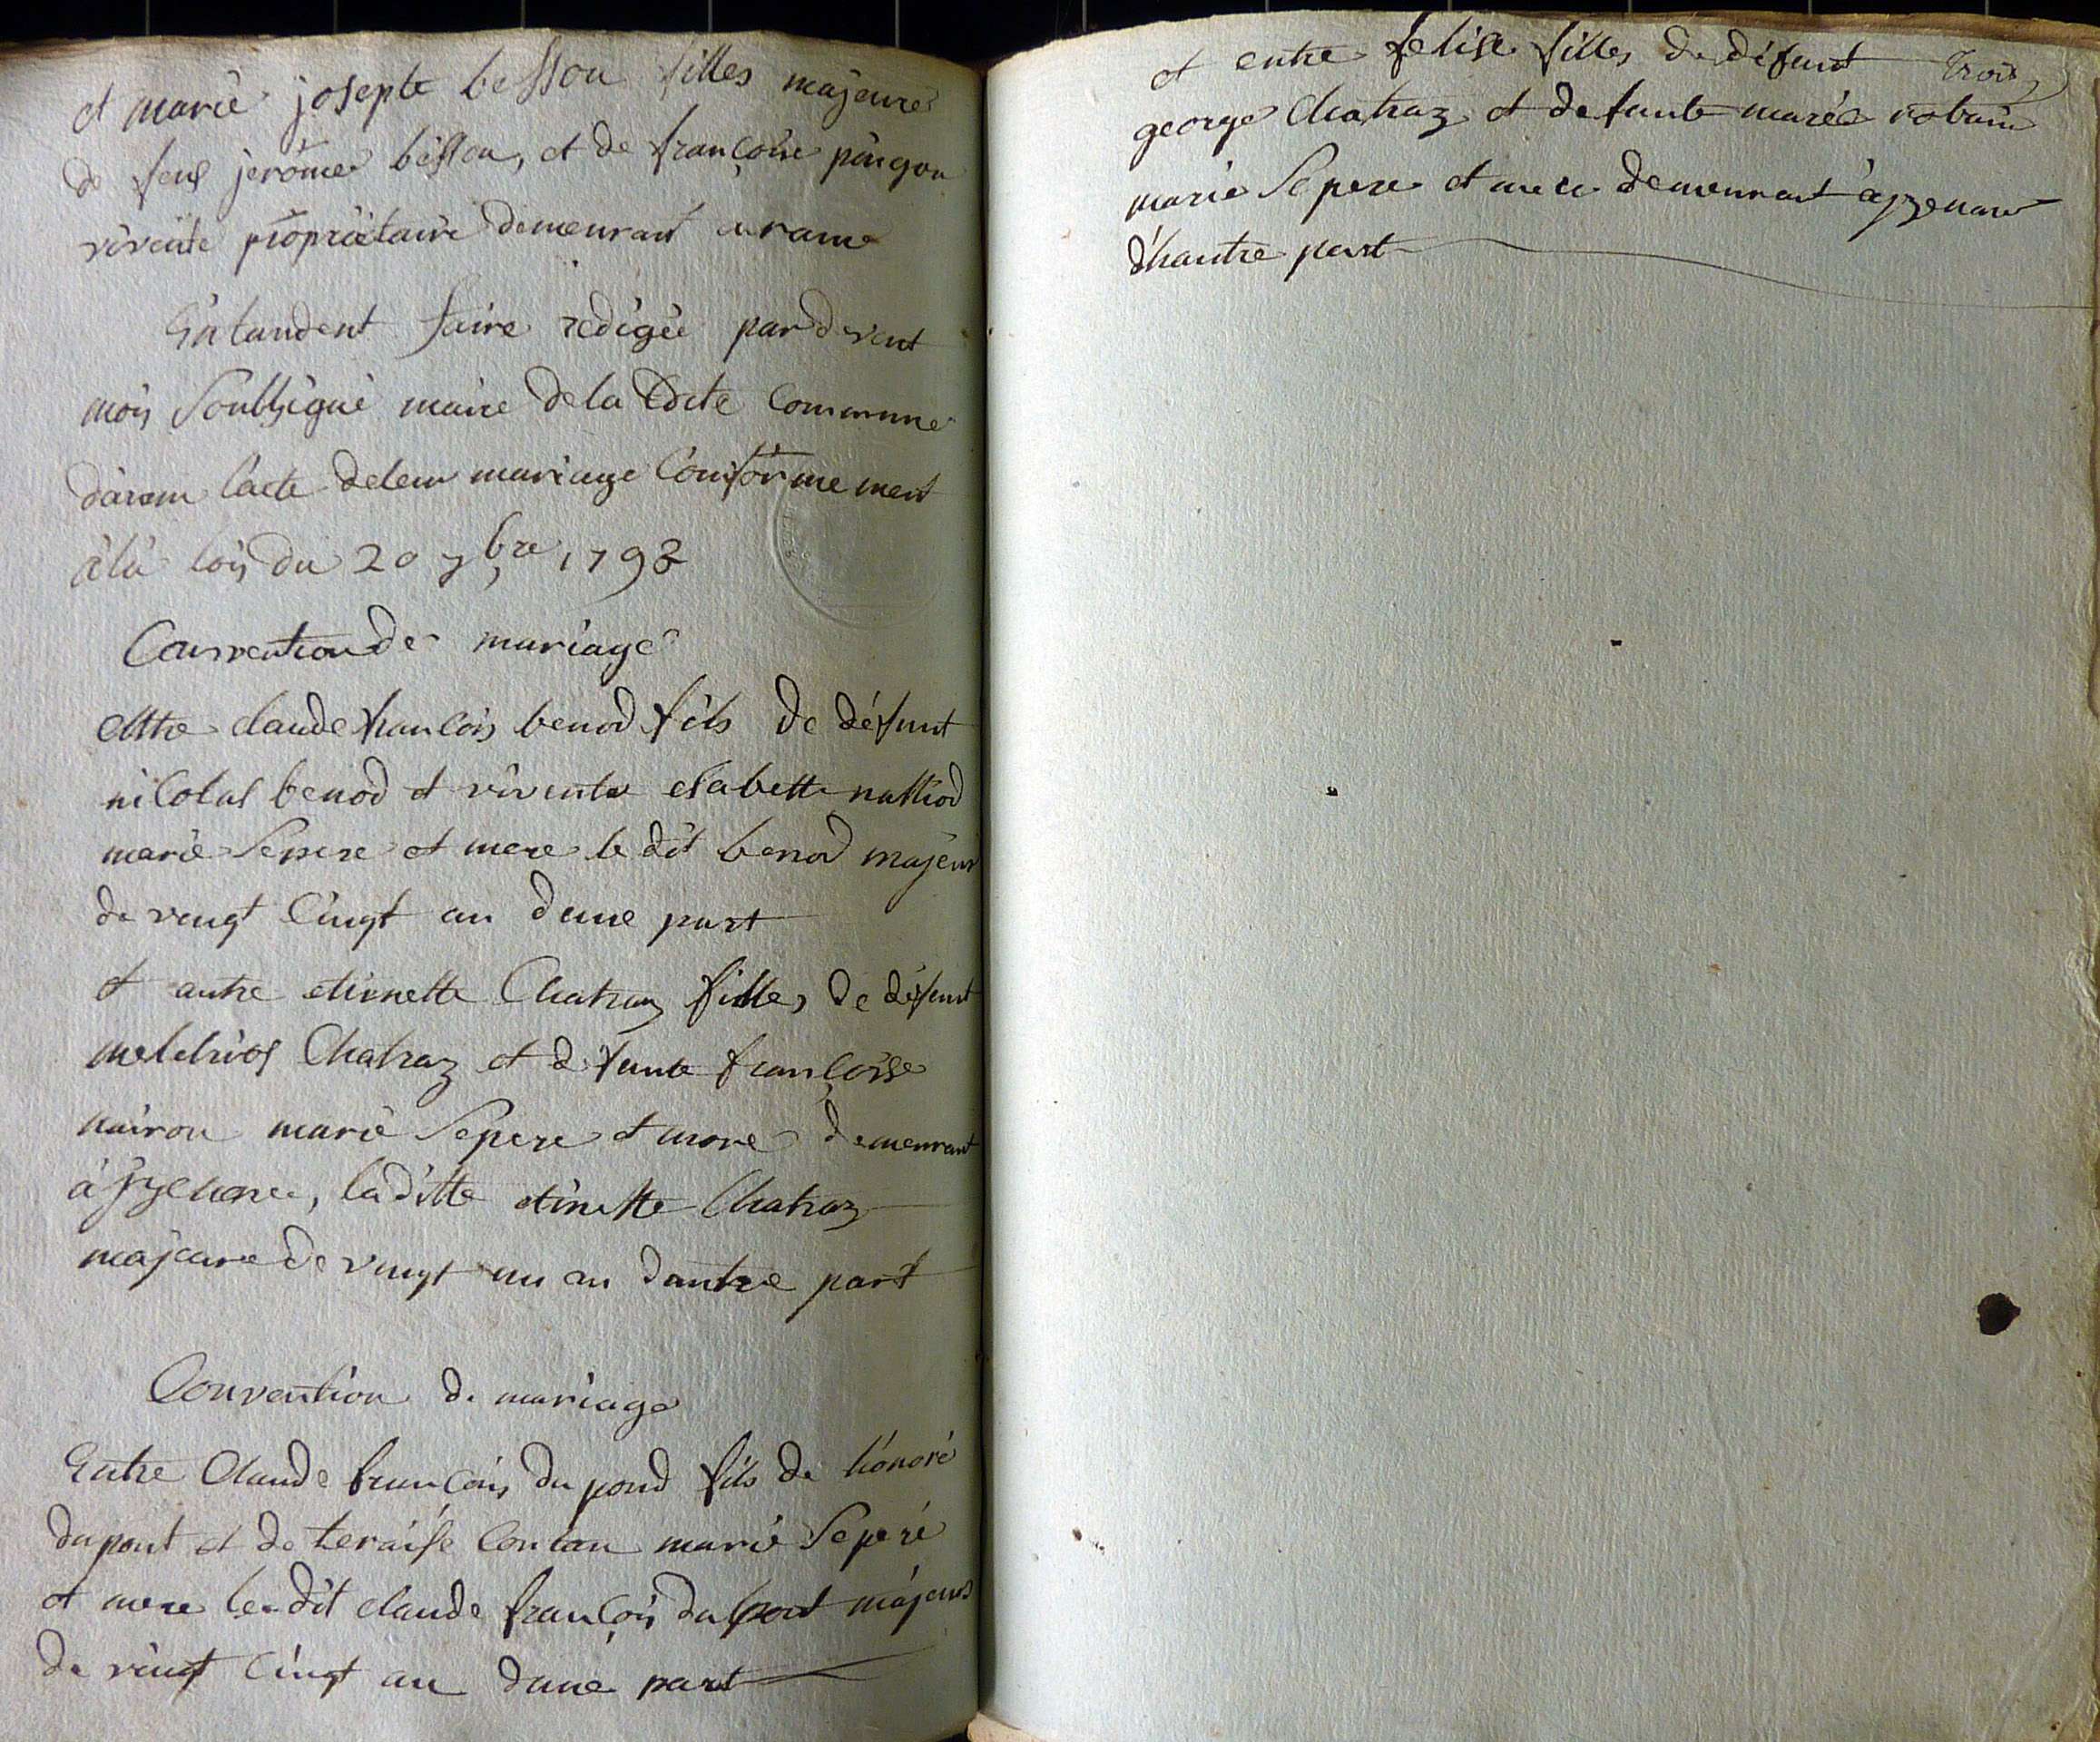 et marie josepte besson filles majeure
de feus jerôme besson, et de françoise pingon
vivente propriëtaire demeurant a rame
Entandent faire redigée par devent
mois soubsigné maire de la dite Commune
l'acte de leur mariage Conformement
à la lois du 20 7bre 1792
Convention de mariage
entre claude francois benod fils de défunt
nicolas benod et vivente esabette
marie se pere et mere le dit benod majeur
de vengt cingt an dune part
et antre etiennette Chatraz filles de défunt
melchios Chatraz et defunte francoisse
mairou marie se pere et mere demeurant
à, la ditte etinette Chatraz
majeure de vingt un an dautre part
Convention de mariage
Entre Claude francois du pond fils de honoré
dupont et de teraise contan marie se peré
et mere le dit claude francois du pont majeur
de vingt cingt an dune part
et entre felise filles de défunt Trois
george Chatraz et defunte mariée robain
marie se pere et mere demeurant
d'hautre part